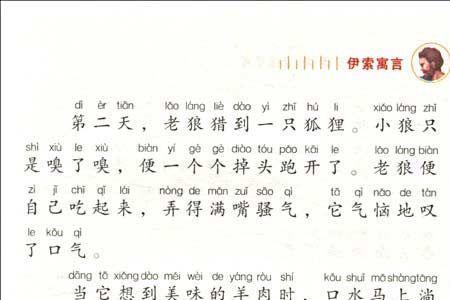 伊索寓言
dì èr tiān lǎo láng liè dào yì zhī hú li xiǎo láng zhǐ
第二天，老狼猎到一只狐狸。小狼只
shì xiù le xiù biàn yí gè gè diào tóu pǎo kāi le lǎo láng biàn
是嗅了嗅，便一个个掉头跑开了。老狼便
zì jǐ chī qǐ lái nòng de mǎn zuǐ sāo qì tā qì nǎo de tàn
自己吃起来，弄得满嘴骚气，它气恼地叹
le kǒu qì
了口气。
dāng tā xiǎng dào měi wèi de yáng ròu shí kǒu shuǐ mǎ shàng tǎng
当它想到美味的羊肉时，口水马上淌